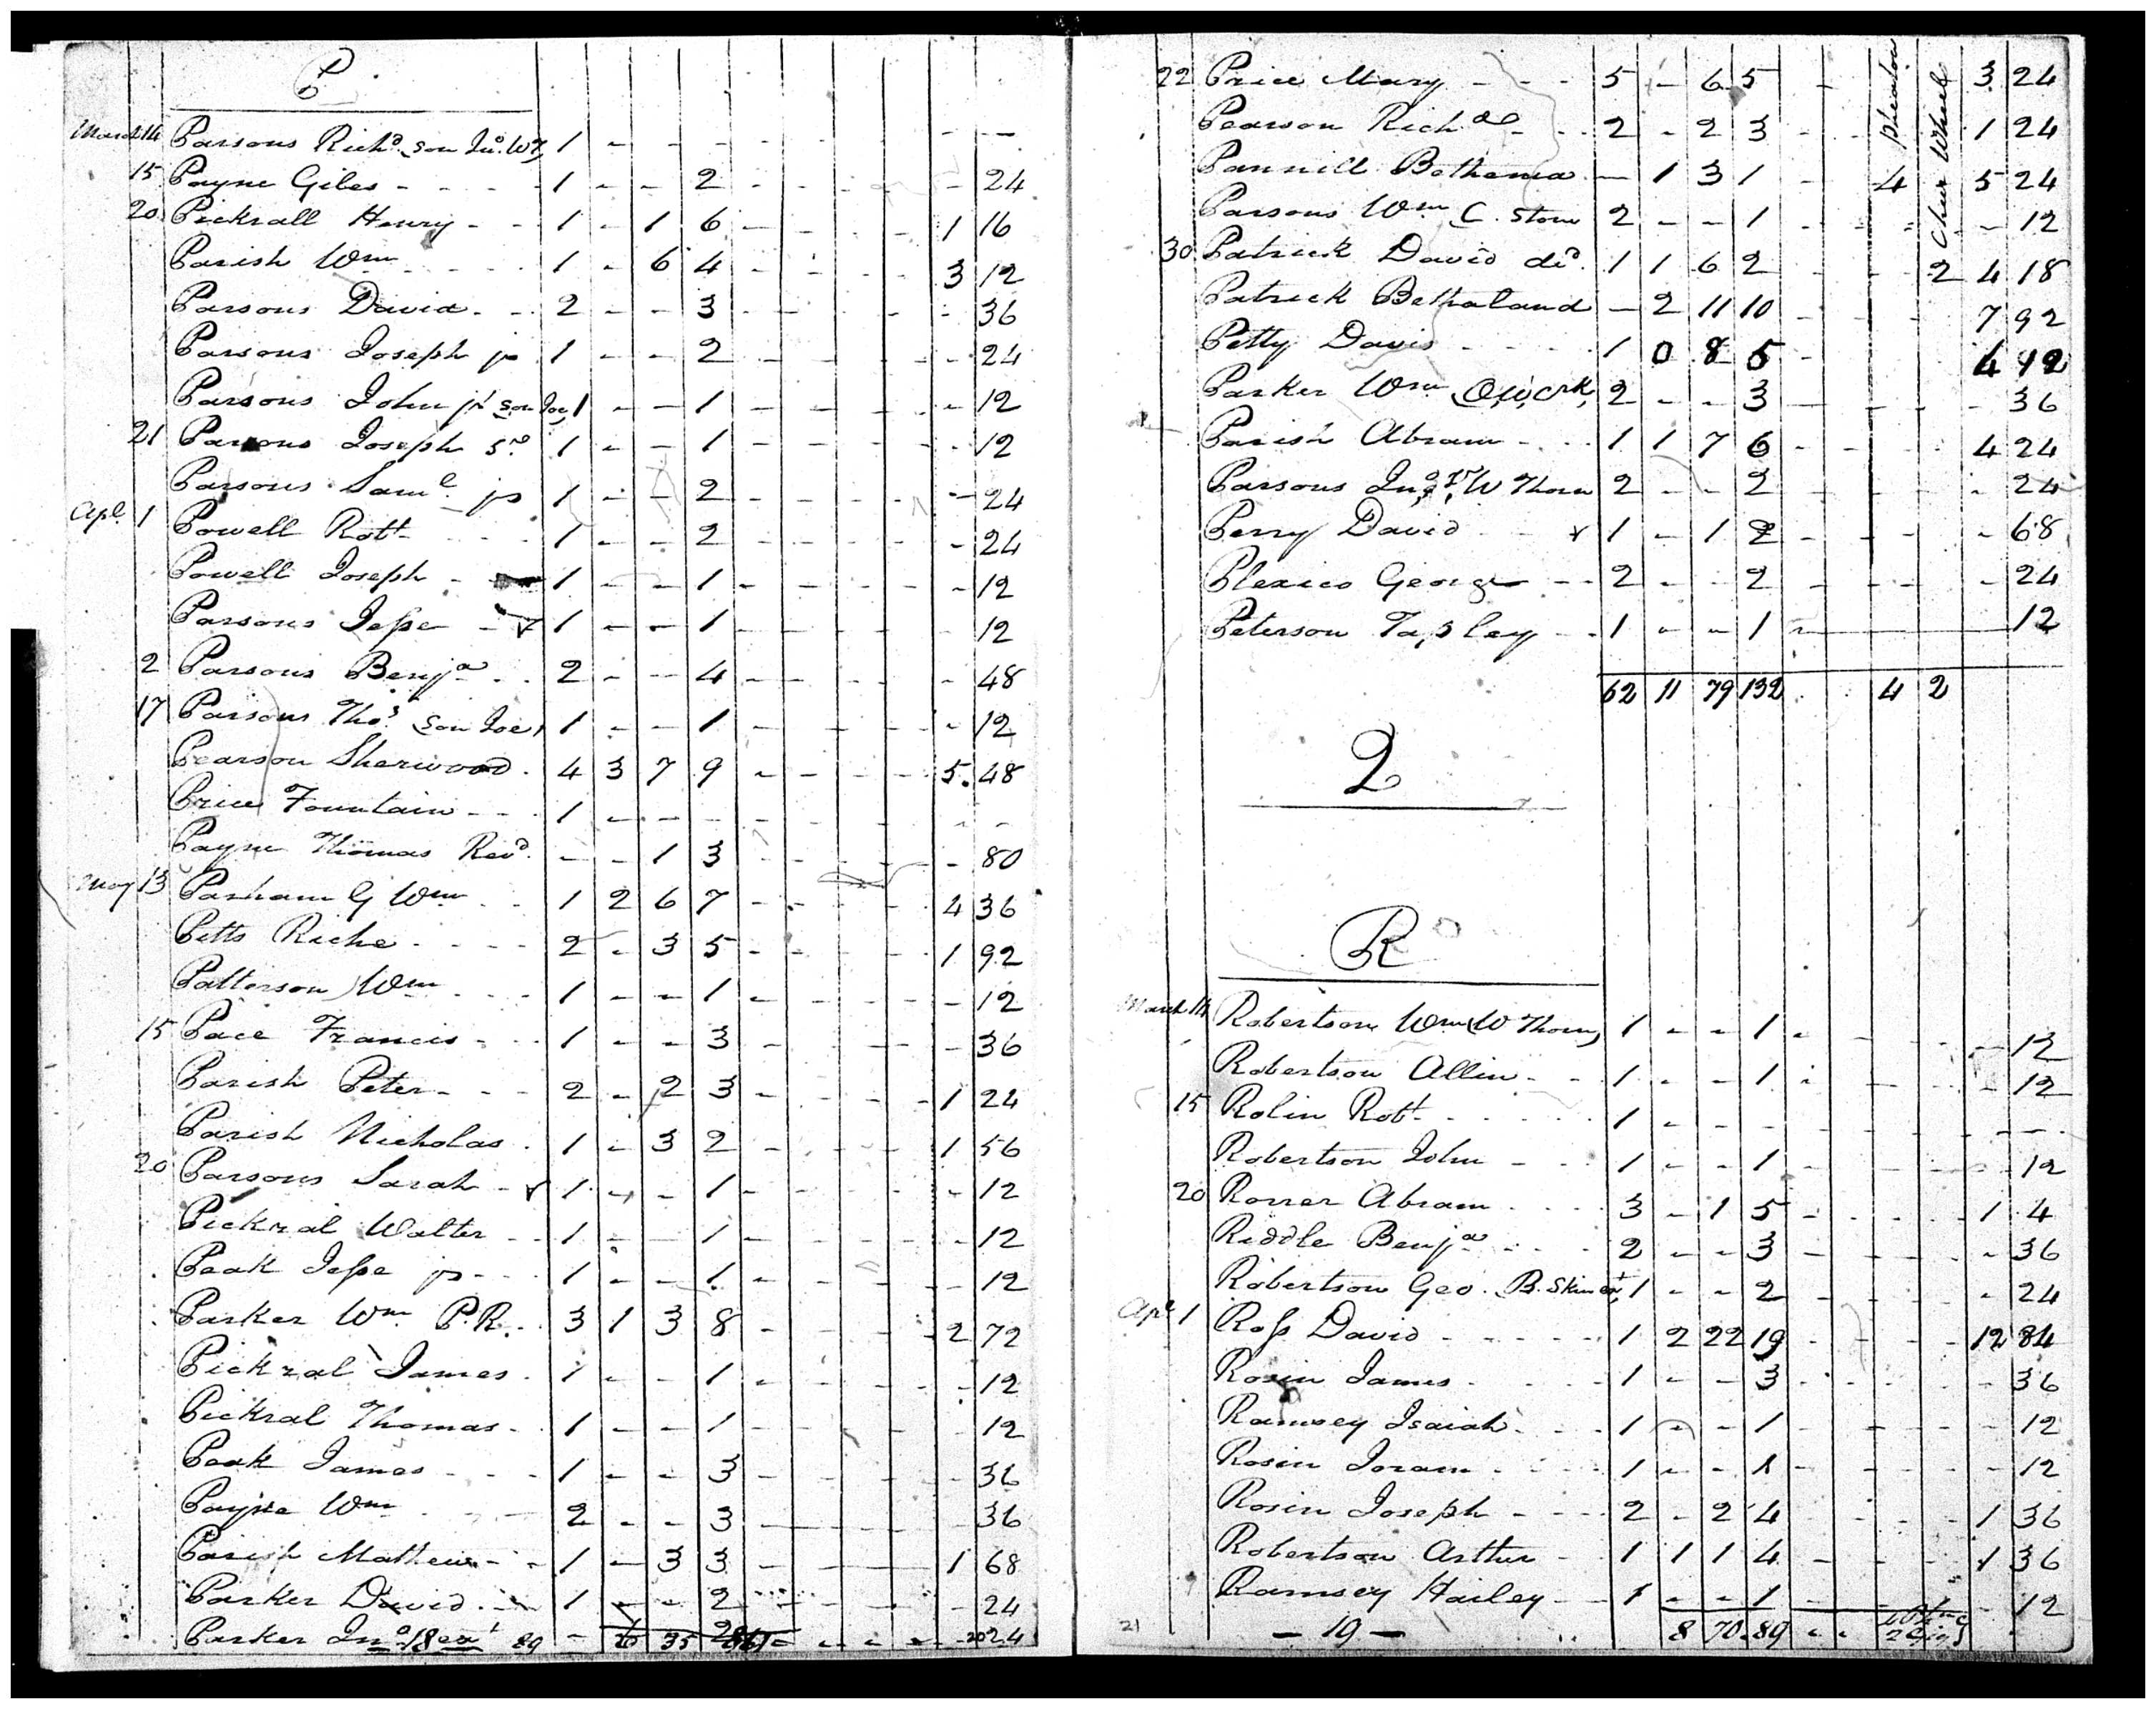 P
March 14 Parsons Richd. son Jno. W T, 1 - - - - - - - - -
15 Payne Giles - - - - 1 - - 2 - - - - - 24
20 Pickrall Henry - - 1 - 1 6 - - - - 1 16
Parish Wm - - - - 1 - 6 4 - - - - 3 12
Parsons David - - 2 - - 3 - - - - - 36
Parsons Joseph jr 1 - - 2 - - - - - 24
Parsons John jr son Joe, 1 - - 1 - - - - - 12
21 Parsons Joseph Sr. 1 - - 1 - - - - - 12
Parsons Saml. jr 1 - - 2 - - - - - 24
Apl. 1 Powell Robt - - - - 1 - - 2 - - - - - 24
Powell Joseph - 1 - - 1 - - - - - 12
Parsons Jesse - 1 - - 1 - - - - - 12
2 Parsons Benja - - 2 - - 4 - - - - - 48
17 Parsons Thos. son Joe, 1 - - 1 - - - - - 12
Pearson Sherwood - 4 3 7 9 - - - - 5. 48
Price Fountain - - - 1 - - - - - - - - -
Payne Thomas Revd. - - 1 3 - - - - - 80
May 13 Parham G Wm - - 1 2 6 7 - - - - 4 36
Petts Riche - - - - 2 - 3 5 - - - - 1 92
Patterson Wm - - - 1 - - 1 - - - - - 12
15 Pace Francis - - 1 - - 3 - - - - - 36
Parish Peter - - - 2 - 2 3 - - - - 1 24
Parish Nicholas - 1 - 3 2 - - - - 1 56
20 Parsons Sarah - 1 - - 1 - - - - - 12
Pickral Walter - - 1 - - 1 - - - - - 12
Peak Jesse jr - - - 1 - - 1 - - - - - 12
Parker Wm. P.R. - 3 1 3 8 - - - - 2 72
Pickral James - 1 - - 1 - - - - - 12
Pickral Thomas - 1 - - 1 - - - - - 12
Peak James - - - - 1 - - 3 - - - - - 36
Payne Wm - - - 2 - - 3 - - - - - 36
Parish Mathew - - 1 - 3 3 - - - - 1 68
Parker David - - 1 - - 2 - - - - - 24
Parker Jno. 18 89 - 35 - - - - 24
22 Price Mary - - - 5 - 6 5 - 3 24
Pearson Richd - - 2 - 2 3 - - 1 24
Pannill Bethenia - - 1 3 1 - 4 Pheaton 5 24
Parsons Wm C. Stone 2 - - 1 - - - - - 12
30 Patrick David do. 1 1 6 2 - - - 2 Chair Wheel 4 18
Patrick Bethaland - 2 11 10 - - - 7 92
Petty Davis - - - - 1 0 8 5 - 4 92
Parker Wm O,W,Crk, 2 - - 3 - - - - - 36
Parish Abram - - - 1 1 7 6 - - - - 4 24
Parsons Jno. Jr W Thom 2 - - 2 - - - - - 24
Perry David - - 1 - 1 2 - - - - - 68
Plexico George - - 2 - - 2 - - - - - 24
Peterson Tapley - - 1 - - 1 - 12
62 11 79 132 4 2
Q
R
March 14 Robertson Wm (W Thom) 1 - - 1 - - - - - 12
Robertson Allin - - 1 - - 1 - - - - - 12
15 Rolin Robt - - - - - 1 - - - - - - - - -
Robertson John - - 1 - - 1 - - - - - 12
20 Rorrer Abram - - - - 3 - 1 5 - - - - 1 4
Riddle Benja - - - - 2 - - 3 - - - - - 36
Robertson Geo. B. Skin 1 - - 2 - - - - - 24
Apl. 1 Ross David - - - - - 1 2 22 19 - - - - 12 84
Rosin James - - - - 1 - - 3 - - - - - 36
Ramsey Isaiah - - - 1 - - 1 - - - - - 12
Rosin Joram - - - - 1 - - 1 - - - - - 12
Rosin Joseph - - - 2 - 2 4 - - - - 1 36
Robertson Arthur - - 1 1 1 4 - - - - 1 36
Ramsey Hailey - - 1 - - 1 - - - - - 12
21 - 19 - 8 70 89 - -